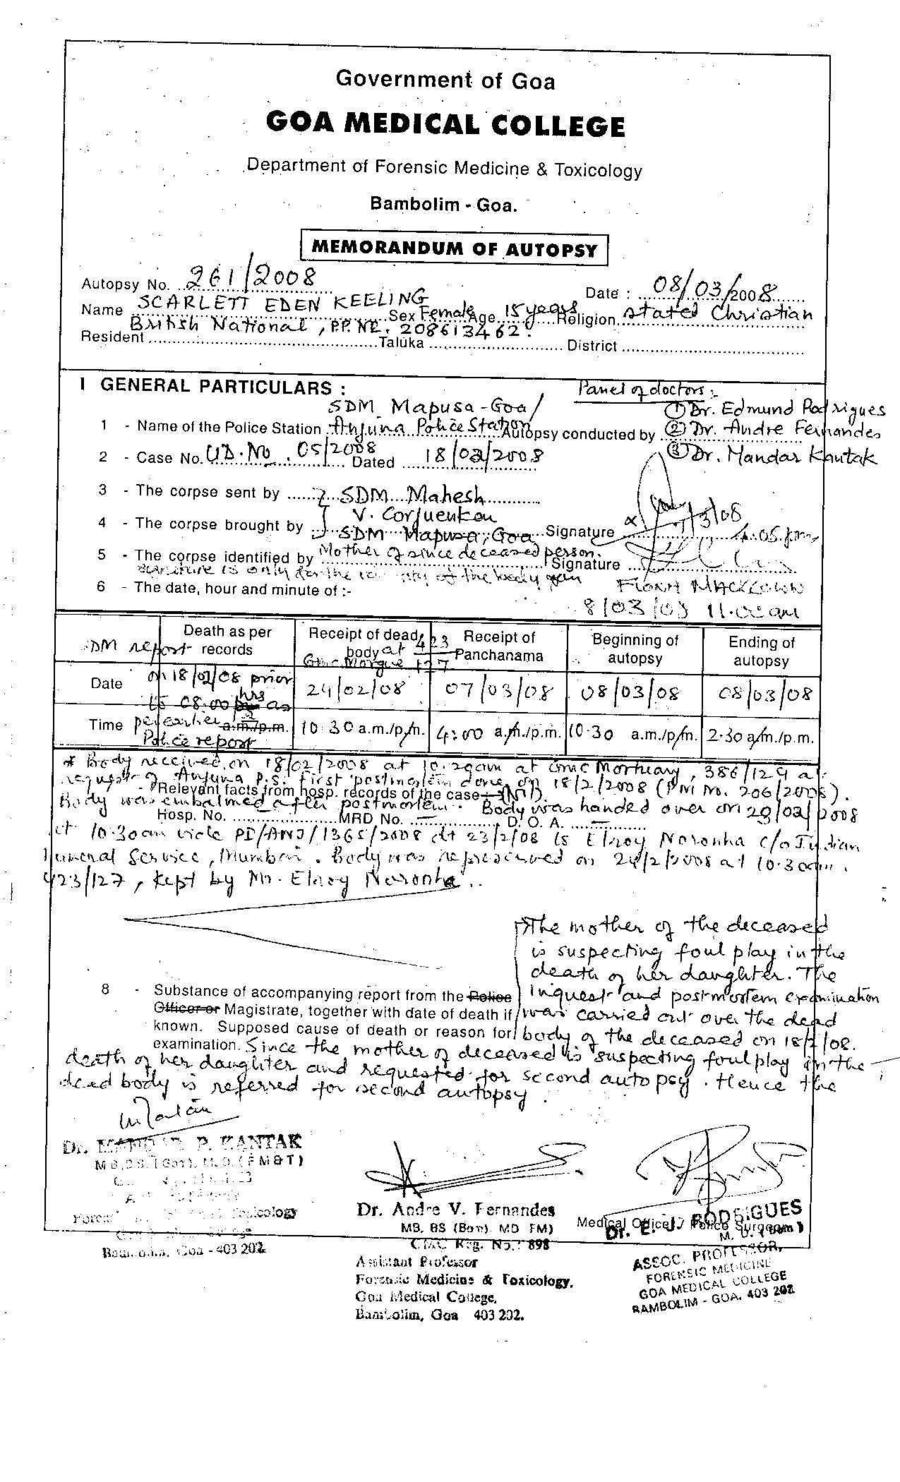 Government of Goa
GOA MEDICAL COLLEGE
Department of Forensic Medicine & Toxicology
Bambolim - Goa.
MEMORANDUM OF AUTOPSY
Autopsy No. 261/2008 Date : 08/03/2008
Name SCARLETT EDEN KEELING Sex Female Age 15 years Religion stated Christian
British National, PP.NE. 208613462.
Resident Taluka District
I GENERAL PARTICULARS : Panel of doctors:
SDM Mapusa-Goa/ ① Dr. Edmund Rodrigues
1 - Name of the Police Station Anjuna Police Station Autopsy conducted by ② Dr. Andre Fernandes
2 - Case No. UD.No. 05/2008 Dated 18/02/2008 ③ Dr. Mandar Kantak
3 - The corpse sent by SDM Mahesh
V. Corjuenkar /3/08
4 - The corpse brought by SDM Mapusa, Goa Signature 4.05 pm
5 - The corpse identified by Mother of since deceased person. Signature
signature is only for the of the body FIONA MACKEOWN
6 - The date, hour and minute of :- 8/03/08 11.00 am
SDM report Death as per records Receipt of dead body at 423 GMC Morgue 127 Receipt of Panchanama Beginning of autopsy Ending of autopsy
Date on 18/02/08 prior to 08.00 hrs as 24/02/08 07/03/08 08/03/08 08/03/08
Time per earlier a.m./p.m. Police report 10 30 a.m./p.m. 4:00 a.m./p.m. 10.30 a.m./p.m. 2.30 a.m./p.m.
* Body received on 18/02/2008 at 10.20am at GMC Mortuary, 386/129 at
request of Anjuna P.S. First postmortem done on 18/2/2008 (PM No. 206/2008).
- Relevant facts from hosp. records of the case
Body was embalmed after postmortem. Body was handed over on 23/02/2008
Hosp. No. MRD No. — D. O. A. —
at 10:30am vide PI/ANJ/1365/2008 dt 23/2/08 to Elroy Noronha c/o Indian
Funeral Service, Mumbai. Body was represerved on 24/2/2008 at 10.30am.
423/127, kept by Mr. Elroy Noronha.
The mother of the deceased
is suspecting foul play in the
death of her daughter. The
8 - Substance of accompanying report from the Police inquest and postmortem examination
Officer or Magistrate, together with date of death if was carried out over the dead
known. Supposed cause of death or reason for body of the deceased on 18/2/08.
examination. Since the mother of deceased is suspecting foul play in the
death of her daughter and requested for second autopsy. Hence the
dead body is referred for second autopsy.
Dr. MANDAR P. KANTAK
Dr. Andre V. Fernandes
MB, BS (Bom), MD FM)
GMC Reg. No.: 898
Assistant Professor
Forensic Medicine & Toxicology,
Goa Medical College,
Bambolim, Goa 403 202.
Toxicology
Bambolim, Goa - 403 202
Medical Officer / Police Surgeon
Dr. E. J. RODRIGUES
M. D. (Bom)
ASSOC. PROFESSOR,
FORENSIC MEDICINE
GOA MEDICAL COLLEGE
BAMBOLIM - GOA. 403 202